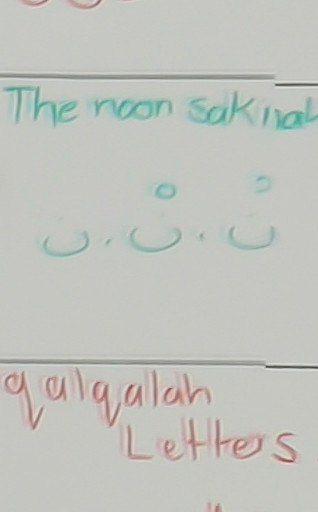 The noon sakinah
ن . نْ . نۡ
qalqalah
Letters